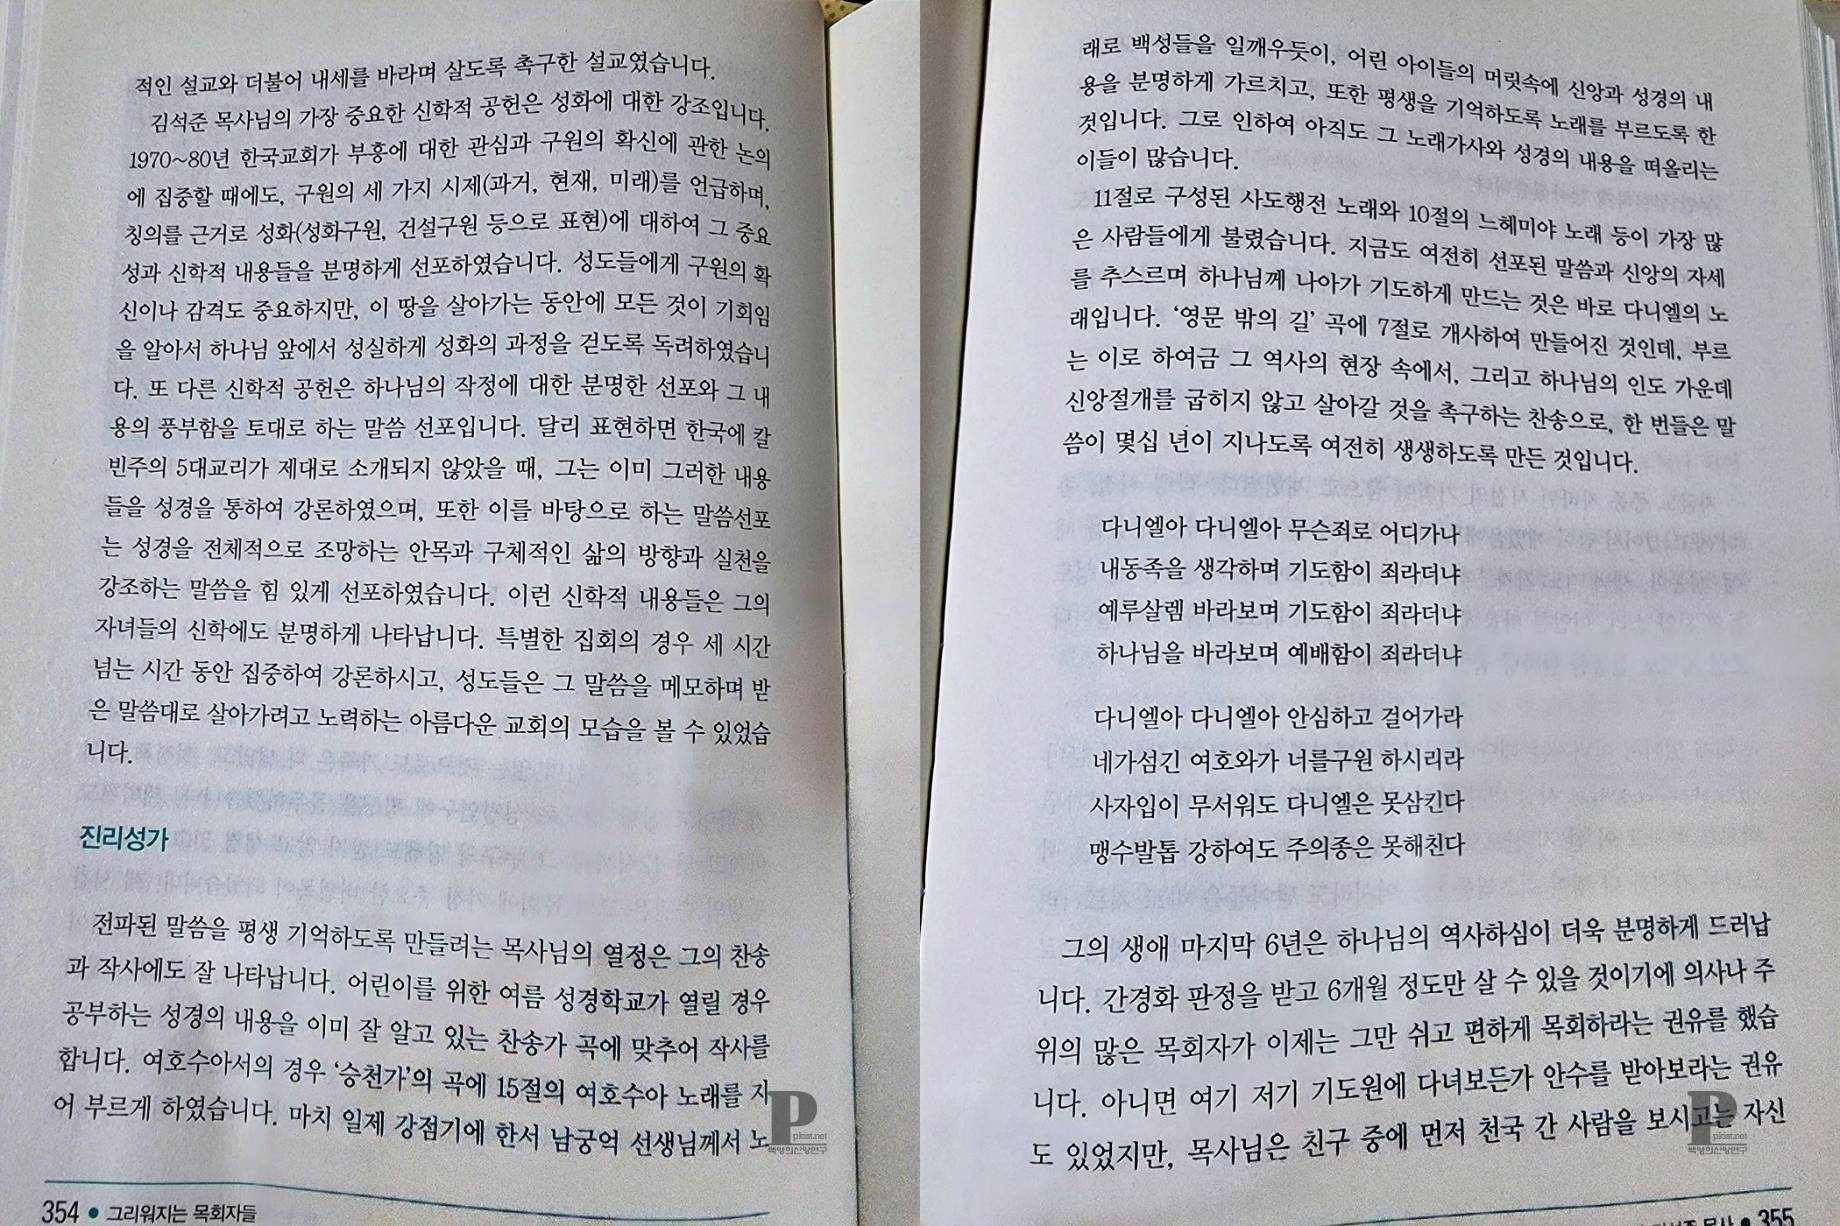 적인 설교와 더불어 내세를 바라며 살도록 촉구한 설교였습니다.
김석준 목사님의 가장 중요한 신학적 공헌은 성화에 대한 강조입니다.
1970~80년 한국교회가 부흥에 대한 관심과 구원의 확신에 관한 논의
에 집중할 때에도, 구원의 세 가지 시제(과거, 현재, 미래)를 언급하며,
칭의를 근거로 성화(성화구원, 건설구원 등으로 표현)에 대하여 그 중요
성과 신학적 내용들을 분명하게 선포하였습니다. 성도들에게 구원의 확
신이나 감격도 중요하지만, 이 땅을 살아가는 동안에 모든 것이 기회임
을 알아서 하나님 앞에서 성실하게 성화의 과정을 걷도록 독려하였습니
다. 또 다른 신학적 공헌은 하나님의 작정에 대한 분명한 선포와 그 내
용의 풍부함을 토대로 하는 말씀 선포입니다. 달리 표현하면 한국에 칼
빈주의 5대교리가 제대로 소개되지 않았을 때, 그는 이미 그러한 내용
들을 성경을 통하여 강론하였으며, 또한 이를 바탕으로 하는 말씀선포
는 성경을 전체적으로 조망하는 안목과 구체적인 삶의 방향과 실천을
강조하는 말씀을 힘 있게 선포하였습니다. 이런 신학적 내용들은 그의
자녀들의 신학에도 분명하게 나타납니다. 특별한 집회의 경우 세 시간
넘는 시간 동안 집중하여 강론하시고, 성도들은 그 말씀을 메모하며 받
은 말씀대로 살아가려고 노력하는 아름다운 교회의 모습을 볼 수 있었습
니다.
진리성가
전파된 말씀을 평생 기억하도록 만들려는 목사님의 열정은 그의 찬송
과 작사에도 잘 나타납니다. 어린이를 위한 여름 성경학교가 열릴 경우
공부하는 성경의 내용을 이미 잘 알고 있는 찬송가 곡에 맞추어 작사를
합니다. 여호수아서의 경우 '승천가'의 곡에 15절의 여호수아 노래를 지
어 부르게 하였습니다. 마치 일제 강점기에 한서 남궁억 선생님께서 노
P
pkist.net
백영희신앙연구
354 • 그리워지는 목회자들
래로 백성들을 일깨우듯이, 어린 아이들의 머릿속에 신앙과 성경의 내
용을 분명하게 가르치고, 또한 평생을 기억하도록 노래를 부르도록 한
것입니다. 그로 인하여 아직도 그 노래가사와 성경의 내용을 떠올리는
이들이 많습니다.
11절로 구성된 사도행전 노래와 10절의 느헤미야 노래 등이 가장 많
은 사람들에게 불렸습니다. 지금도 여전히 선포된 말씀과 신앙의 자세
를 추스르며 하나님께 나아가 기도하게 만드는 것은 바로 다니엘의 노
래입니다. '영문 밖의 길' 곡에 7절로 개사하여 만들어진 것인데, 부르
는 이로 하여금 그 역사의 현장 속에서, 그리고 하나님의 인도 가운데
신앙절개를 굽히지 않고 살아갈 것을 촉구하는 찬송으로, 한 번들은 말
씀이 몇십 년이 지나도록 여전히 생생하도록 만든 것입니다.
다니엘아 다니엘아 무슨죄로 어디가나
내동족을 생각하며 기도함이 죄라더냐
예루살렘 바라보며 기도함이 죄라더냐
하나님을 바라보며 예배함이 죄라더냐
다니엘아 다니엘아 안심하고 걸어가라
네가섬긴 여호와가 너를구원 하시리라
사자입이 무서워도 다니엘은 못삼킨다
맹수발톱 강하여도 주의종은 못해친다
그의 생애 마지막 6년은 하나님의 역사하심이 더욱 분명하게 드러납
니다. 간경화 판정을 받고 6개월 정도만 살 수 있을 것이기에 의사나 주
위의 많은 목회자가 이제는 그만 쉬고 편하게 목회하라는 권유를 했습
니다. 아니면 여기 저기 기도원에 다녀보든가 안수를 받아보라는 권유
도 있었지만, 목사님은 친구 중에 먼저 천국 간 사람을 보시고는 자신
P
pkist.net
백영희신앙연구
목사 • 355